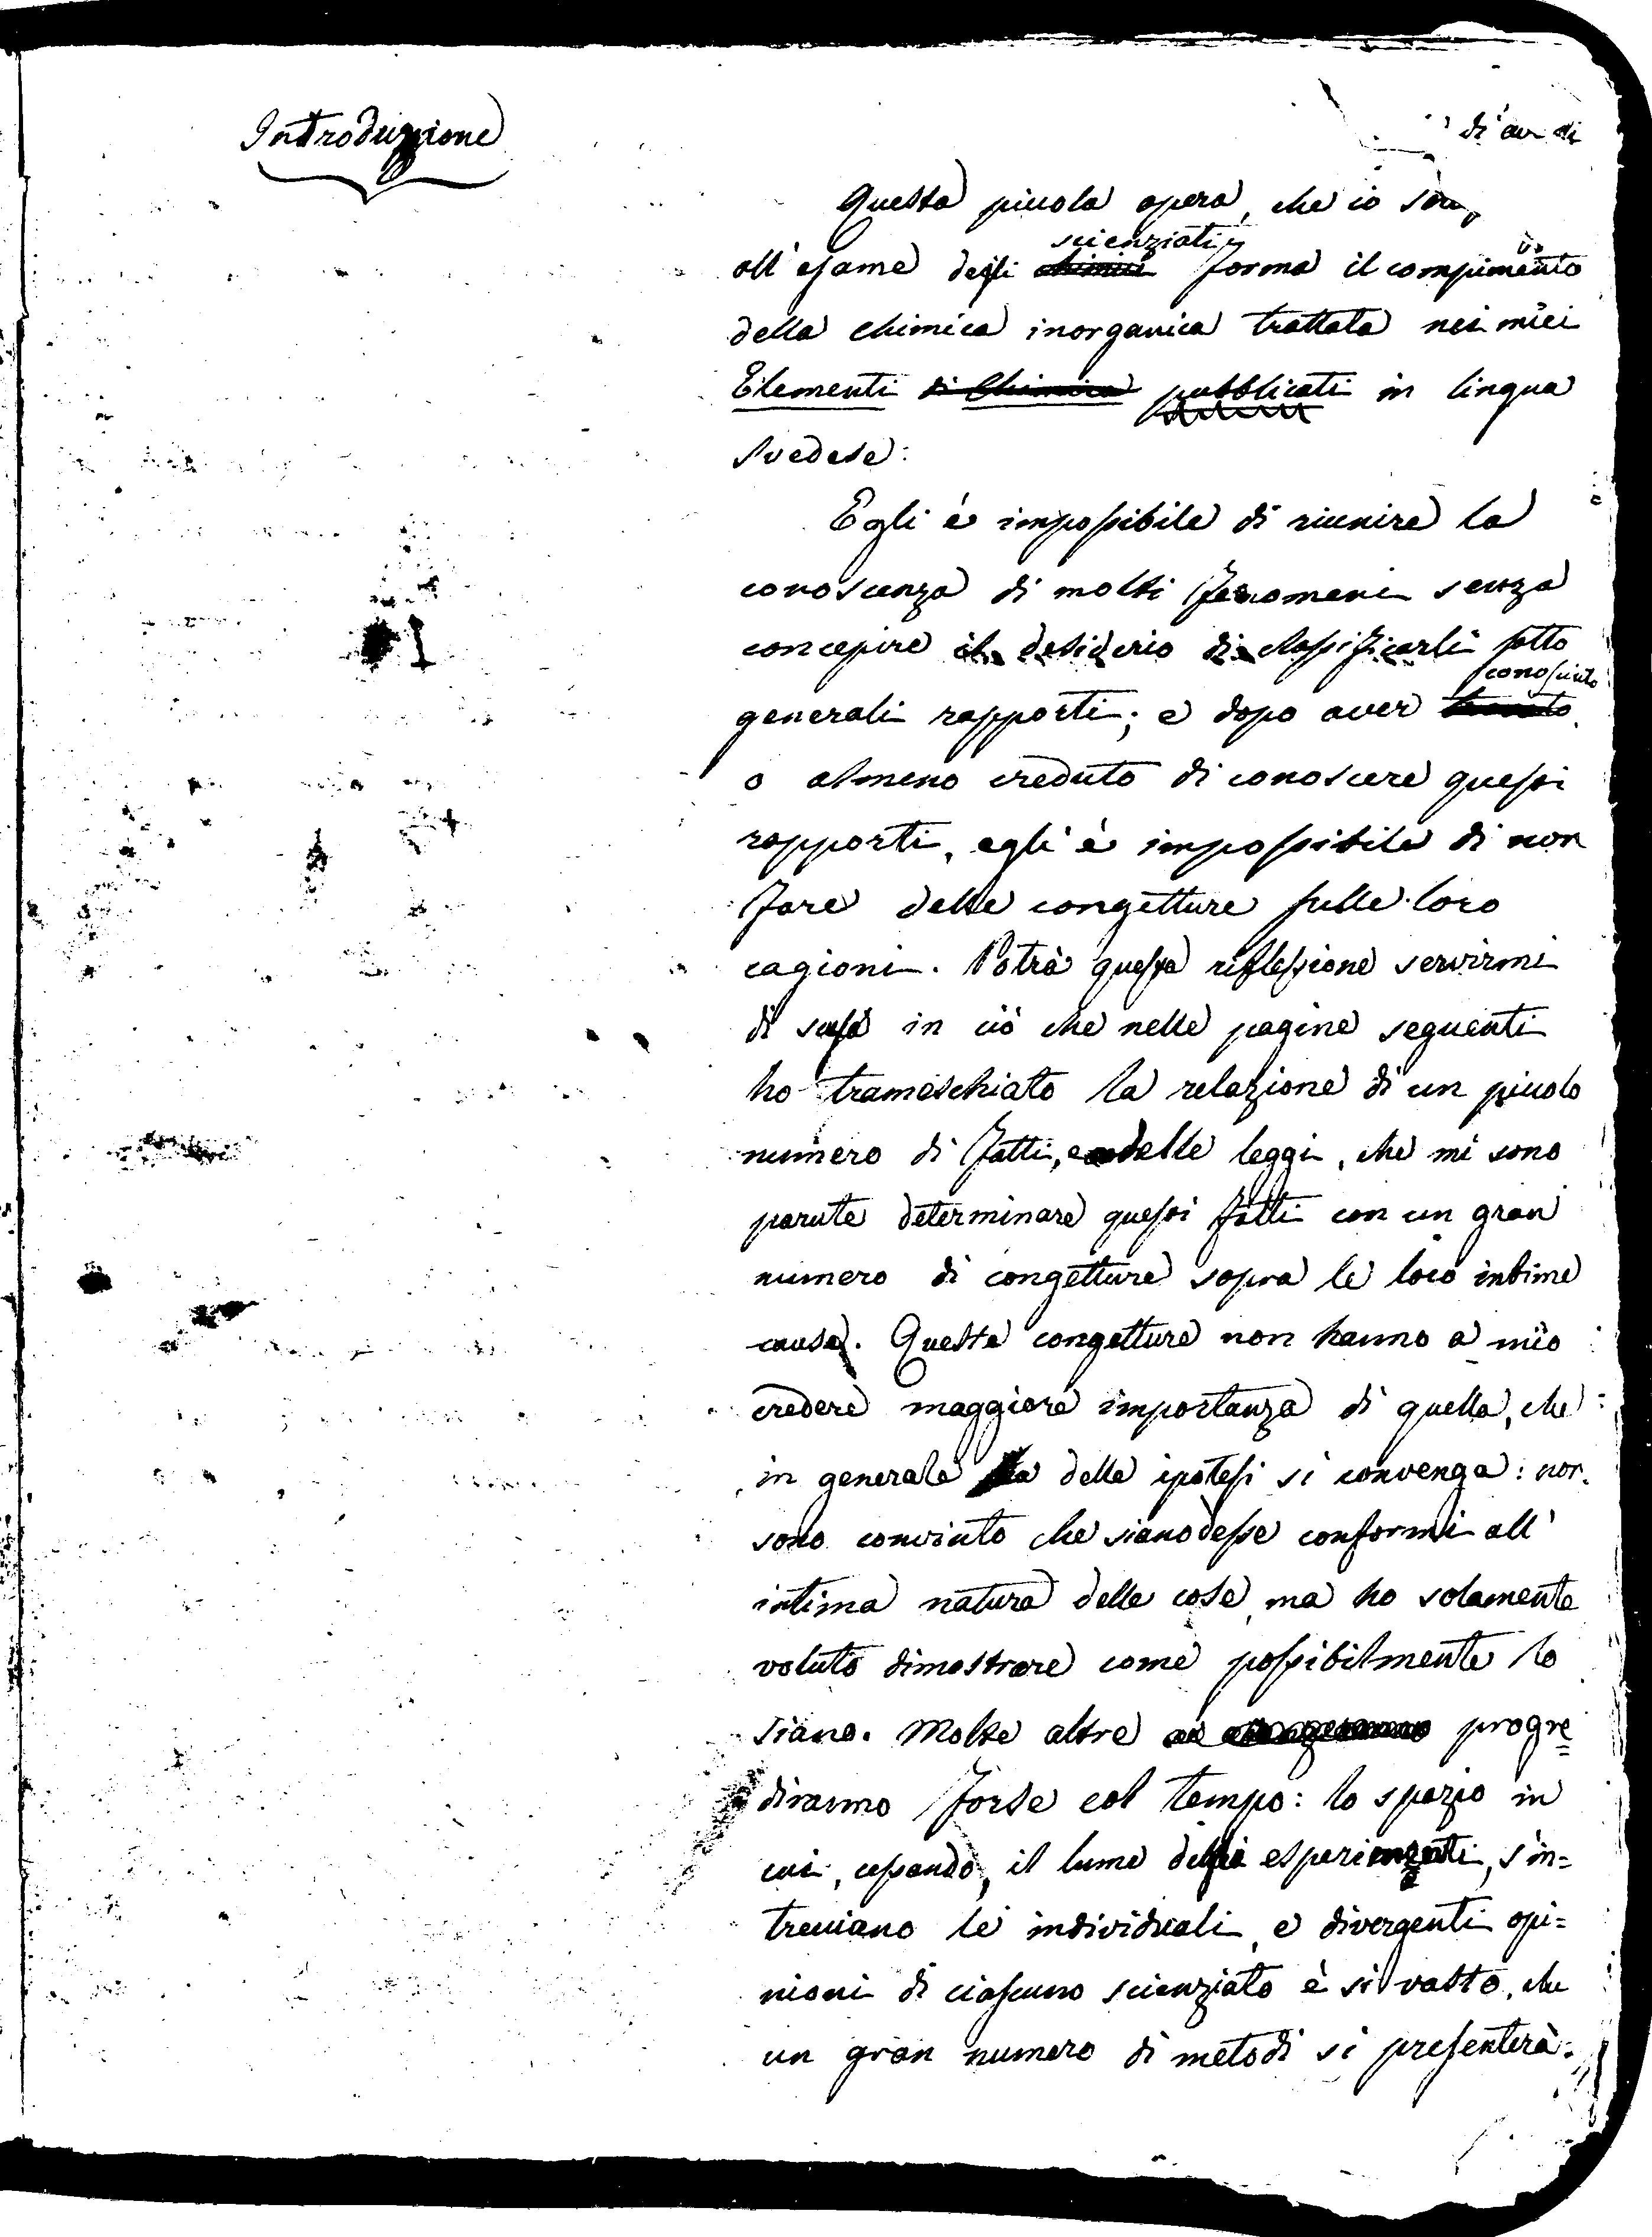 Introduzione
di
Questa picola opera, che io
all'esame degli scienziati forma il compimento
della chimica inorganica trattata nei miei
Elementi di Chimica pubblicati in lingua
Svedese:
Egli è impossibile di riunire la
conoscenza di molti fenomeni senza
concepire il desiderio di classificarli sotto
generali rapporti; e dopo aver conosciuto
o almeno creduto di conoscere questi
rapporti, egli è impossibile di non
fare delle congetture sulle loro
cagioni. Potrà questa riflessione servirmi
di scusa in ciò che nelle pagine seguenti
ho trameschiato la relazione di un picolo
numero di fatti, e delle leggi, che mi sono
parute determinare questi fatti con un gran
numero di congetture sopra le loro intime
cause. Queste congetture non hanno a mio
credere maggiore importanza di quella, che
in generale a delle ipotesi si convenga: non
sono convinto che siano desse conformi all'
intima natura delle cose, ma ho solamente
voluto dimostrare come possibilmente lo
siano. Molte altre progre
diranno forse col tempo: lo spazio in
cui, cessando, il lume degli esperimenti, s'in=
treciano le individuali, e divergenti opi=
nioni di ciascuno scienziato è sì vasto, che
un gran numero di metodi si presenterà.